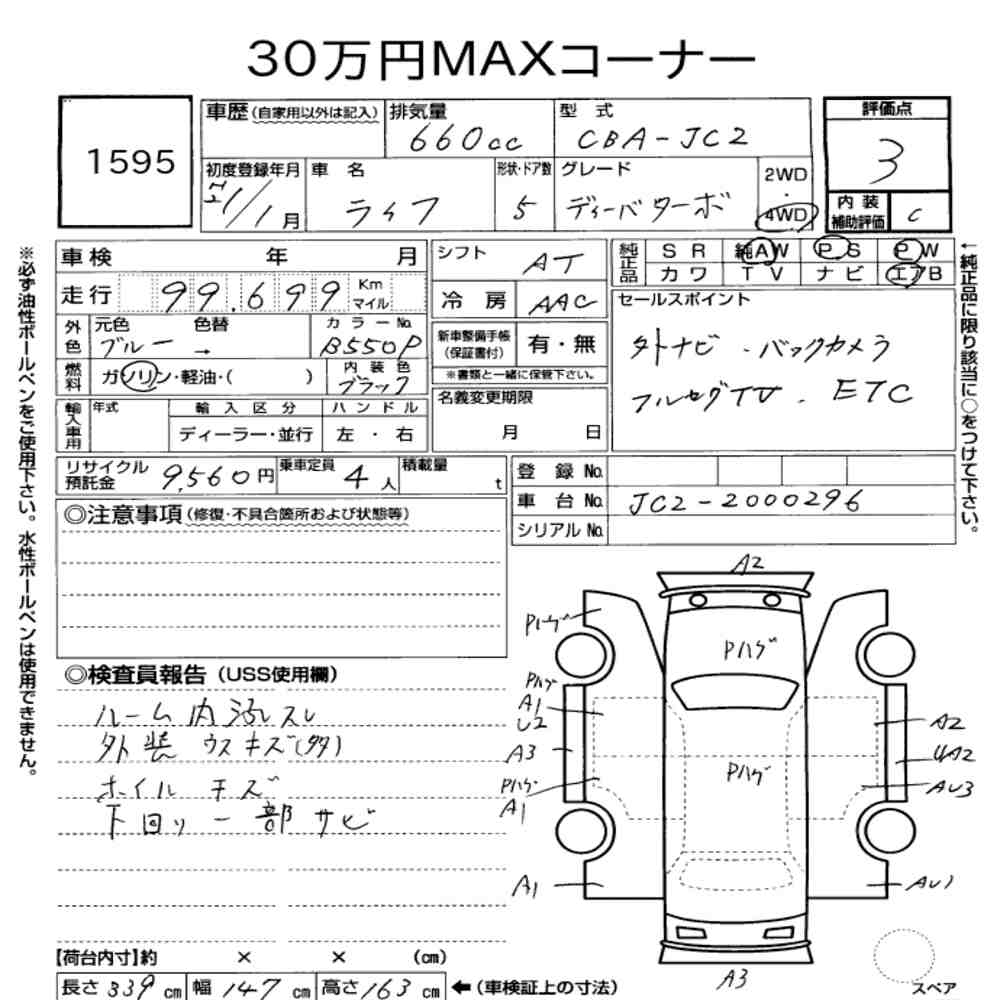 30万円MAXコーナー
1595
車歴(自家用以外は記入)
排気量
660cc
型 式
CBA-JC2
評価点
3
初度登録年月
21/1月
車 名
ライフ
形状・ドア数
5
グレード
ディーバターボ
2WD
・
4WD
内 装
補助評価
C
車検 年 月
シフト
AT
純正品
S R
純AW
P S
P W
カ ワ
T V
ナ ビ
エアB
走行
99,699
Km
マイル
冷 房
AAC
セールスポイント
外ナビ . バックカメラ
フルセグTV . ETC
外色
元色 色替
ブルー →
カ ラ ー No.
B550P
新車整備手帳
(保証書付)
有・無
※書類と一緒に保管下さい。
燃料
ガソリン・軽油・( )
内 装 色
ブラック
名義変更期限
月 日
輸入車用
年式
輸 入 区 分
ディーラー・並行
ハ ン ド ル
左 ・ 右
リサイクル
預託金
9,560円
乗車定員
4人
積載量
t
登 録 No.
車 台 No.
JC2-2000296
シリアル No.
◎注意事項(修復・不具合箇所および状態等)
◎検査員報告(USS使用欄)
ルーム内汚レスレ
外装 ウスキズ(多)
ホイル キズ
下回リ一部サビ
A2
Pハゲ
Pハゲ
Pハゲ
A1
U2
A3
Pハゲ
A1
A1
Pハゲ
A2
UA2
AU3
AU1
A3
スペア
【荷台内寸】約 × × (cm)
長さ339cm 幅147cm 高さ163cm
←(車検証上の寸法)
※必ず油性ボールペンをご使用下さい。水性ボールペンは使用できません。
←純正品に限り該当に○をつけて下さい。